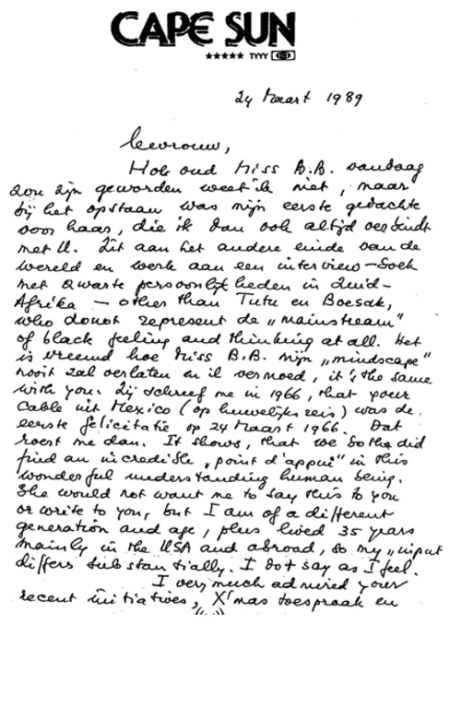 CAPE SUN
★★★★★ TYYY
24 Maart 1989
Mevrouw,
Hoe oud Miss B.B. vandaag
zou zijn geworden weet ik niet, maar
bij het opstaan was mijn eerste gedachte
voor haar, die ik dan ook altijd verbindt
met U. Zit aan het andere einde van de
wereld en werk aan een interview-boek
met zwarte persoonlijkheden in Zuid-
Afrika — other than Tutu en Boesak,
who donot represent de „mainstream"
of black feeling and thinking at all. Het
is vreemd hoe Miss B.B. mijn „mindscape"
nooit zal verlaten en ik vermoed, it's the same
with you. Zij schreef me in 1966, that your
Cable uit Mexico (op huwelijksreis) was de
eerste felicitatie op 24 Maart 1966. Dat
roest me dan. It shows, that we both did
find an incredible „point d'appui" in this
wonderful understanding human being.
She would not want me to say this to you
or write to you, but I am of a different
generation and age, plus lived 35 years
mainly in the USA and abroad, so my „input
differs substantially. I do + say as I feel.
I very much admired your
recent initiatives, X'mas toespraak en